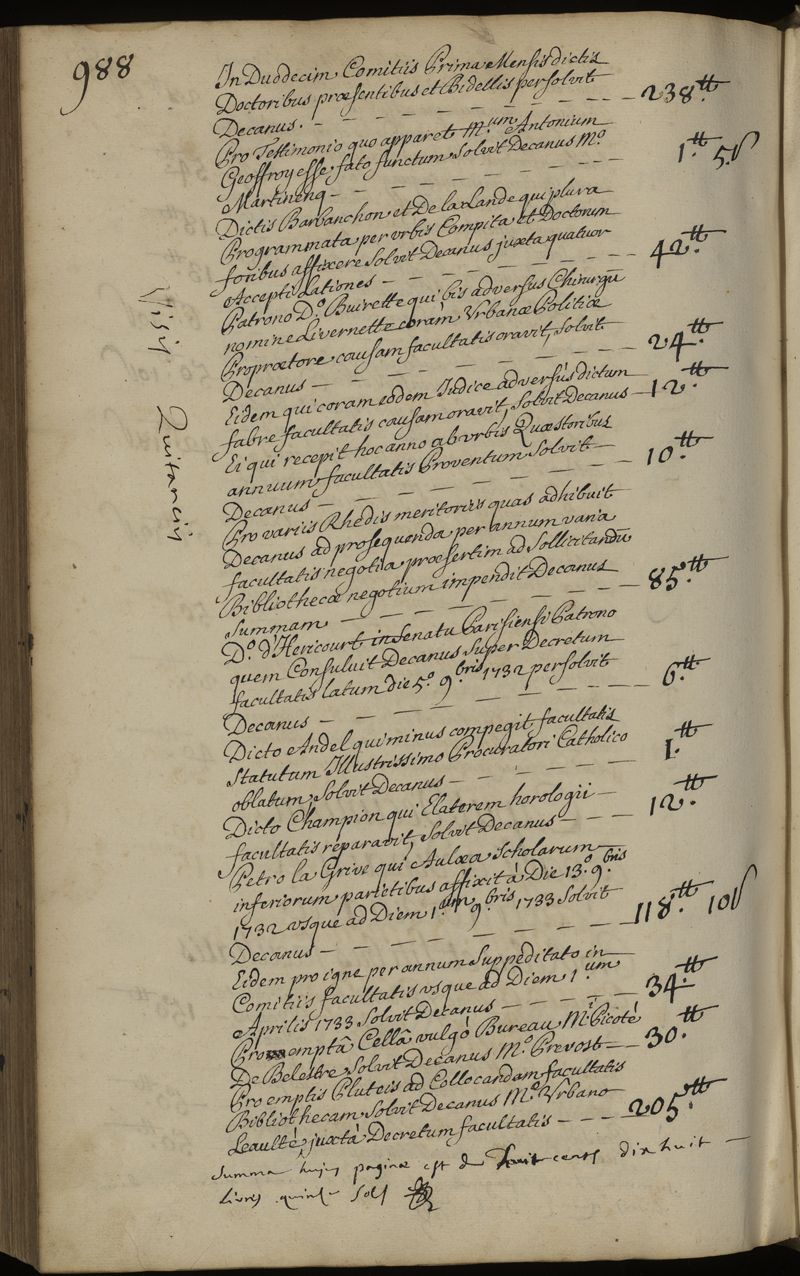 988
In Duodecim Comitiis Prima Mensis dictis
Doctoribus præsentibus et Bidellis persolvit
Decanus. — 238.tt
Pro Testimonio quo apparet M.um Antonium
Geoffroy esse fato functum Solvit Decanus M.o
Martinenq — 1.tt 5.s
Dictis Barbanchon et De la Lande qui plura
Programmata per vrbis Compita et Doctorum
foribus affixere Solvit Decanus juxta quatuor
Accepti Lationes — 42.tt
Patrono D.o Buirette qui bis adversus Chirurgu
nomine Livernette coram Vrbanæ Politiæ
Proprætore causam facultatis oravit, Solvit
Decanus — 24.tt
Eidem qui coram eodem Iudice adversus dictum
fabre facultatis causam oravit, Solvit Decanus — 12.tt
Ei qui recepit hoc anno ab vrbis Quæstoribus
annuum facultatis Proventum Solvit
Decanus — 10.tt
Pro variis Rhedis meritoriis quas adhibuit
Decanus ad prosequenda per annum varia
facultatis negotia præsertim ad Sollicitandū
Bibliothecæ negotium impendit Decanus
Summam — 85.tt
D.o d'Hericourt in Senatu Parisiensi Patrono
quem Consuluit Decanus Super Decretum
facultatis latum die 5.o 9.bris 1732 persolvit
Decanus — 6.tt
Dicto Andel qui minus compegit facultatis
Statutum Illustrissimo Procuratori Catholico
oblatum, Solvit Decanus — 1.tt
Dicto Champion qui Elaterem horologii
facultatis reparavit, Solvit Decanus — 12.tt
Petro la Grive qui Aulæa Scholarum
inferiorum parietibus affixit à Die 13.o 9.bris
1732 vsque ad Diem 1.um 9.bris 1733 Solvit
Decanus — 118.tt 10s
Eidem pro igne per annum Suppeditato in
Comitiis facultatis vsque ad Diem 1.um
Aprilis 1733 Solvit Decanus — 34.tt
Pro emptâ Cellâ vulgò Bureau M.i Picoté
De Belestre Solvit Decanus M.o Prevost — 30.tt
Pro emptis Pluteis ad Collocandam facultatis
Bibliothecam Solvit Decanus M.o Vrbano
Leaulté juxtà Decretum facultatis — 205.tt
Summa hujus paginæ est de huit cents dix huit
Livres quinze sols
Visis
Quitanciis